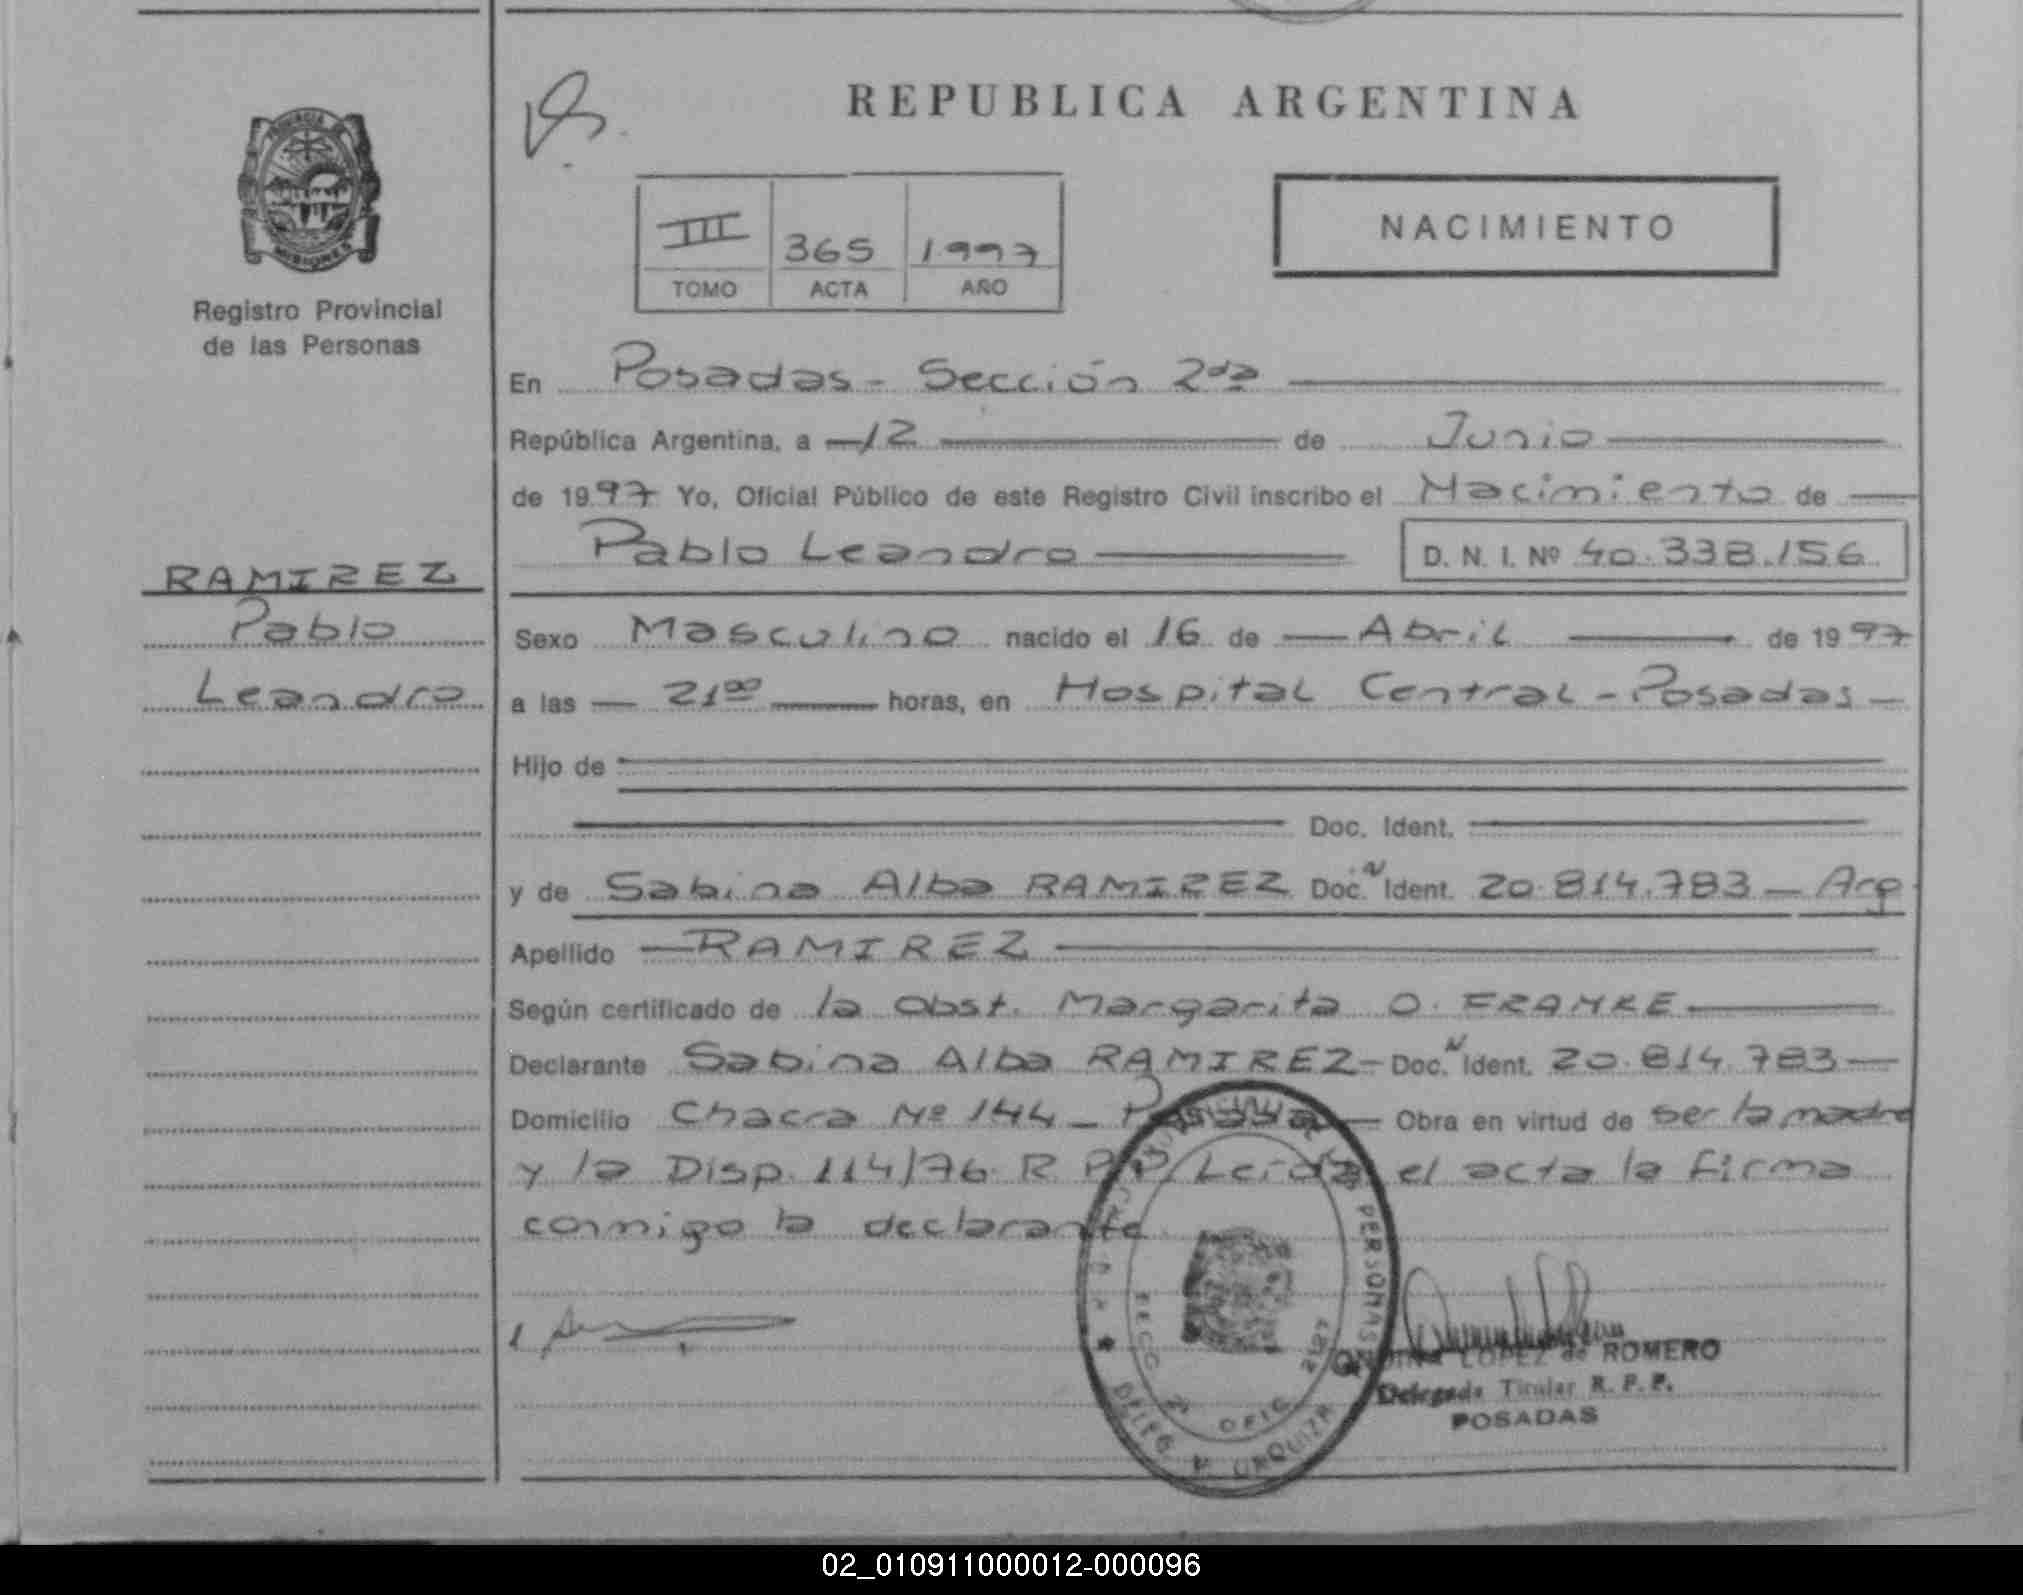 REPUBLICA ARGENTINA
NACIMIENTO
III 365 1.997
TOMO ACTA AÑO
PROVINCIA DE
MISIONES
Registro Provincial
de las Personas
RAMIREZ
Pablo
Leandro
En Posadas - Sección 2da
República Argentina, a 12 de Junio
de 1997 Yo, Oficial Público de este Registro Civil inscribo el Nacimiento de
Pablo Leandro D. N. I. Nº 40.338.156
Sexo Masculino nacido el 16 de Abril de 1997
a las 21 00 horas, en Hospital Central - Posadas -
Hijo de
Doc. Ident.
y de Sabina Alba RAMIREZ Doc. N Ident. 20.814.783 - Arg
Apellido RAMIREZ
Según certificado de la Obst. Margarita O. FRANKE
Declarante Sabina Alba RAMIREZ - Doc. N Ident. 20.814.783
Domicilio Chacra Nº 144 - Posadas Obra en virtud de ser la madre
y la Disp. 114/76. R.P.P. Leída el acta la firma
conmigo la declarante
PERSONAS
SECC 2ª OFIC 2127
DELEG. V. URQUIZA
LOPEZ de ROMERO
Delegada Titular R. P. P.
POSADAS
02_010911000012-000096